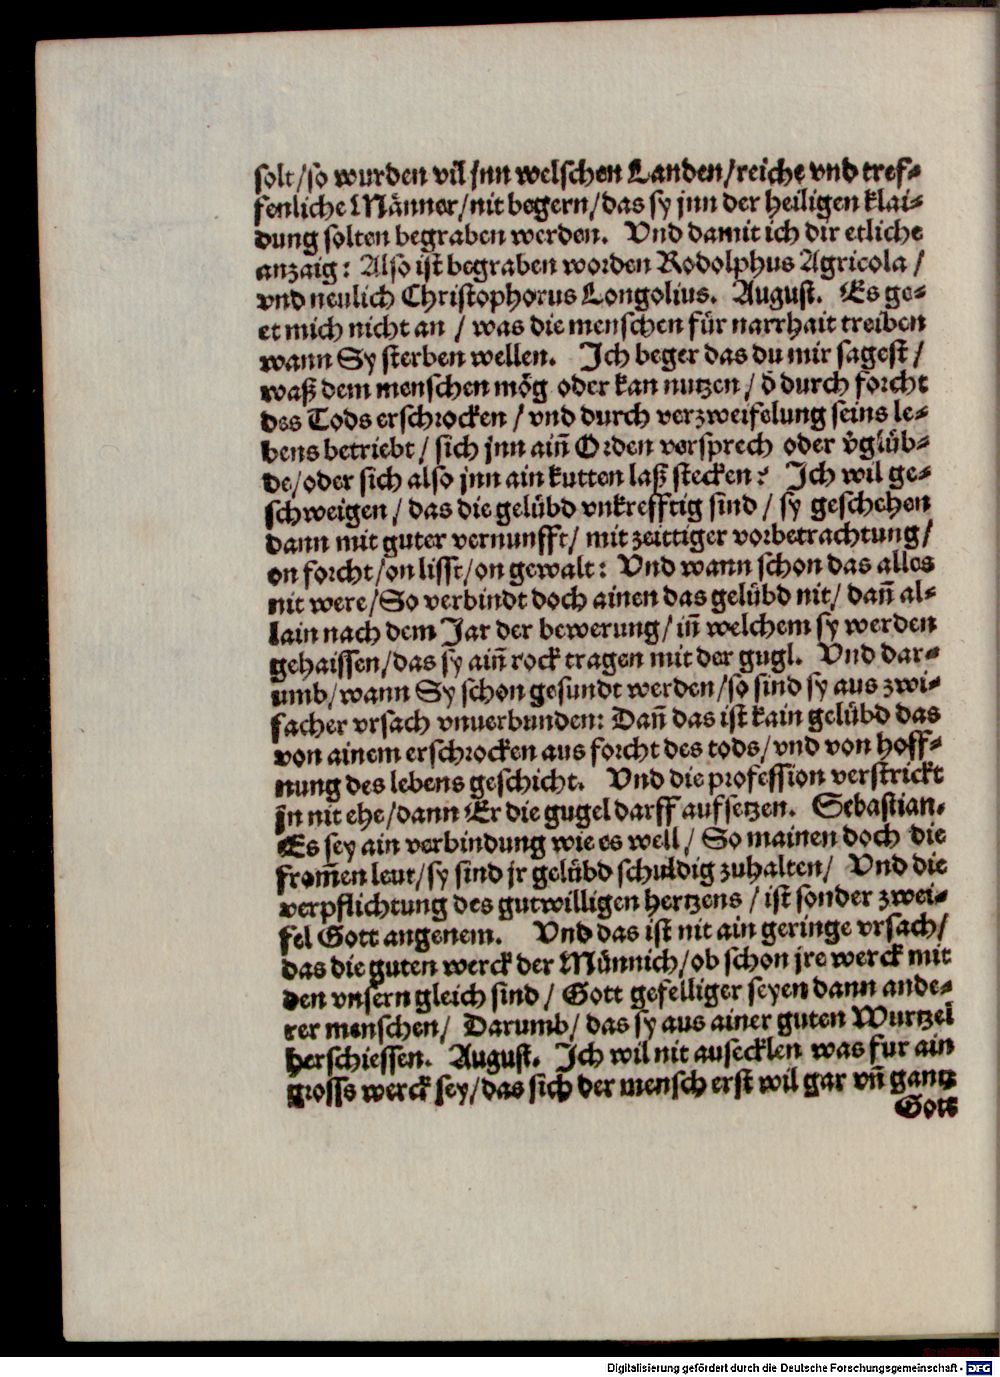 solt/so wurden vil jnn welschen Landen/reiche vnd tref⸗
fenliche Männer/nit begern/das sy jnn der heiligen klai⸗
dung solten begraben werden. Vnd damit ich dir etliche
anzaig: Also ist begraben worden Rodolphus Agricola /
vnd neulich Christophorus Longolius. August. Es ge⸗
et mich nicht an / was die menschen für narrhait treiben
wann Sy sterben wellen. Ich beger das du mir sagest /
waß dem menschen mög oder kan nutzen / d̕ durch forcht
des Tods erschrocken / vnd durch verzweifelung seins le⸗
bens betriebt / sich jnn ain̄ Orden versprech oder v̕glübd⸗
de/oder sich also jnn ain kutten laß stecken? Ich wil ge⸗
schweigen / das die gelübd vnkrefftig sind / sy geschehen
dann mit guter vernunfft/ mit zeittiger vorbetrachtung/
on forcht/on lisst/on gewalt: Vnd wann schon das alles
nit were/So verbindt doch ainen das gelübd nit/ dan̄ al⸗
lain nach dem Jar der bewerung/ in̄ welchem sy werden
gehaissen/das sy ain̄ rock tragen mit der gugl. Vnd dar⸗
umb/wann Sy schon gesundt werden/so sind sy aus zwi⸗
facher vrsach vnuerbunden: Dan̄ das ist kain gelübd das
von ainem erschrocken aus forcht des tods/vnd von hoff⸗
nung des lebens geschicht. Vnd die profession verstrickt
jn nit ehe/dann Er die gugel darff aufsetzen. Sebastian.
Es sey ain verbindung wie es well / So mainen doch die
from̄en leut/sy sind jr gelübd schuldig zuhalten/ Vnd die
verpflichtung des gutwilligen hertzens / ist sonder zwei⸗
fel Gott angenem. Vnd das ist nit ain geringe vrsach/
das die guten werck der Münnich/ob schon jre werck mit
den vnsern gleich sind / Gott gefelliger seyen dann ande⸗
rer menschen/ Darumb/ das sy aus ainer guten Wurtzel
herschiessen. August. Ich wil nit ausecklen was fur ain
gross werck sey/das sich der mensch erst wil gar vn̄ gantz
Gott
Digitalisierung gefördert durch die Deutsche Forschungsgemeinschaft - DFG